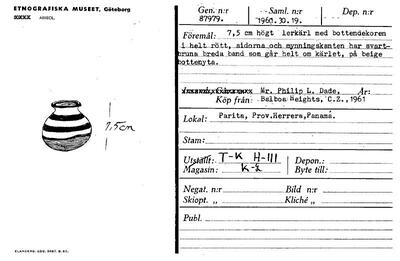 ETNOGRAFISKA MUSEET, Göteborg
ARKEOL.
7,5cm
ELANDERS. GBG. 5967. B. 61.
Gen. n:r
87979.
Saml. n:r
1960.30.19.
Dep. n:r
Föremål: 7,5 cm högt lerkärl med bottendekoren
i helt rött, sidorna och mynningskanten har svart-
bruna breda band som går helt om kärlet, på beige
bottenyta.
Mr. Philip L. Dade, År:
Köp från: Balboa Heights, C.Z., 1961
Lokal: Parita, Prov.Herrera, Panamá.
Stam:
Utställt: T-K H-111 Depon.:
Magasin: K-2 Byte till:
Negat. n:r Bild n:r
Skiopt. „ Kliché „
Publ.